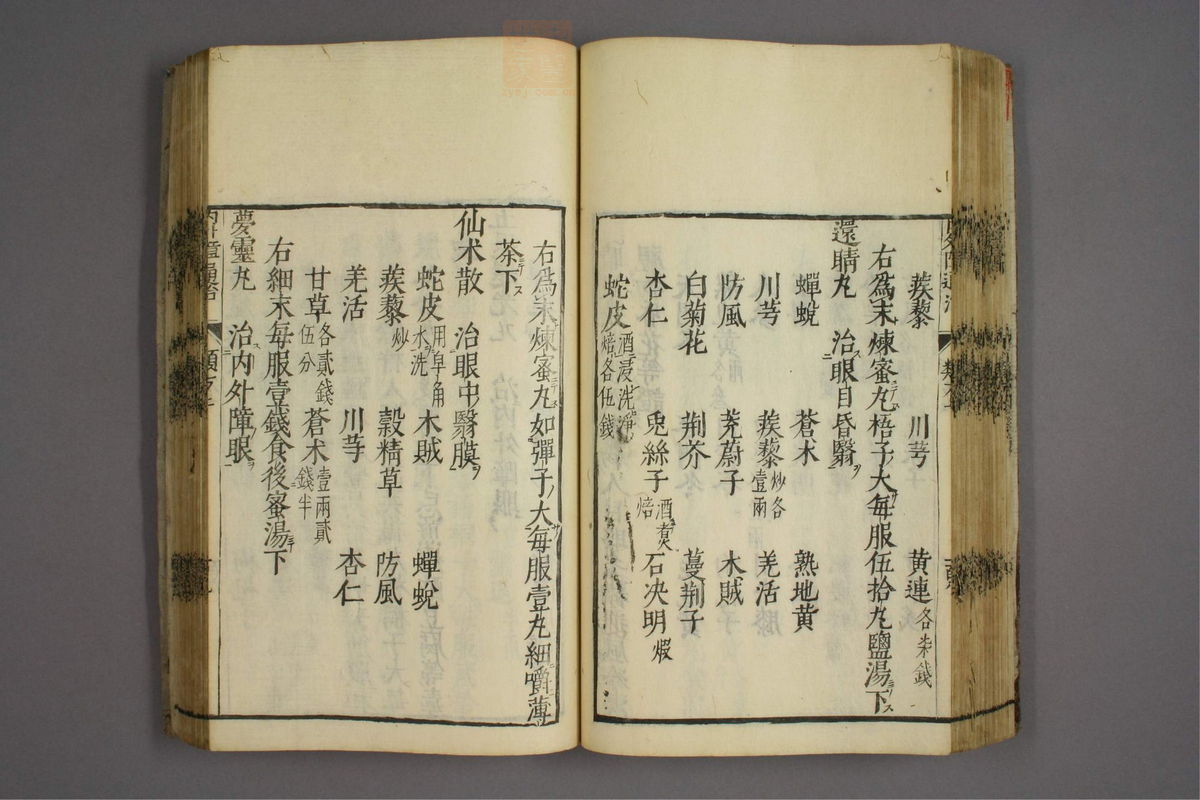 蒺藜 川芎 黃連各柒錢
右爲末煉蜜丸梧子大每服伍拾丸鹽湯下
還睛丸 治眼目昏翳
蟬蛻 蒼朮 熟地黃
川芎 蒺藜炒各壹兩 羌活
防風 茺蔚子 木賊
白菊花 荆芥 蔓荆子
杏仁 兎絲子酒煑焙 石決明煆
蛇皮酒浸洗淨焙各伍錢
右爲末煉蜜丸如彈子大每服壹丸細嚼薄
茶下
仙朮散 治眼中翳膜
蛇皮用皁角水洗 木賊 蟬蛻
蒺藜炒 穀精草 防風
羌活 川芎 杏仁
甘草各貳錢伍分 蒼朮壹兩貳錢半
右細末每服壹錢食後蜜湯下
夢靈丸 治内外障眼